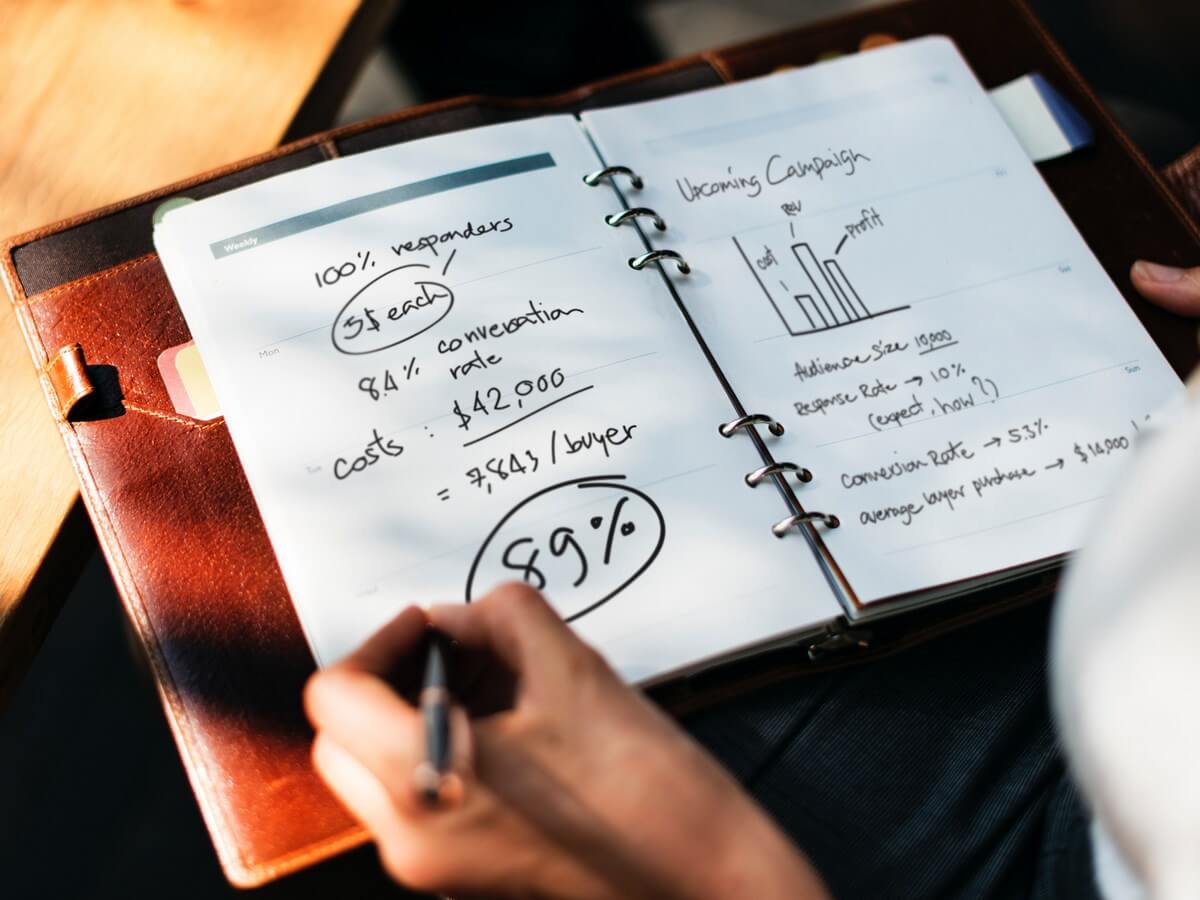 Weekly
100% responders
5$ each
Mon
8.4% conversation
rate
costs : $42,000
= 7,843 / buyer
89%
Upcoming Campaign
Rev
Profit
cost
Audience Size 10,000
Response Rate → 10%
(expect, how?)
Sun
Conversion Rate → 5.3%
average buyer purchase → $14,000